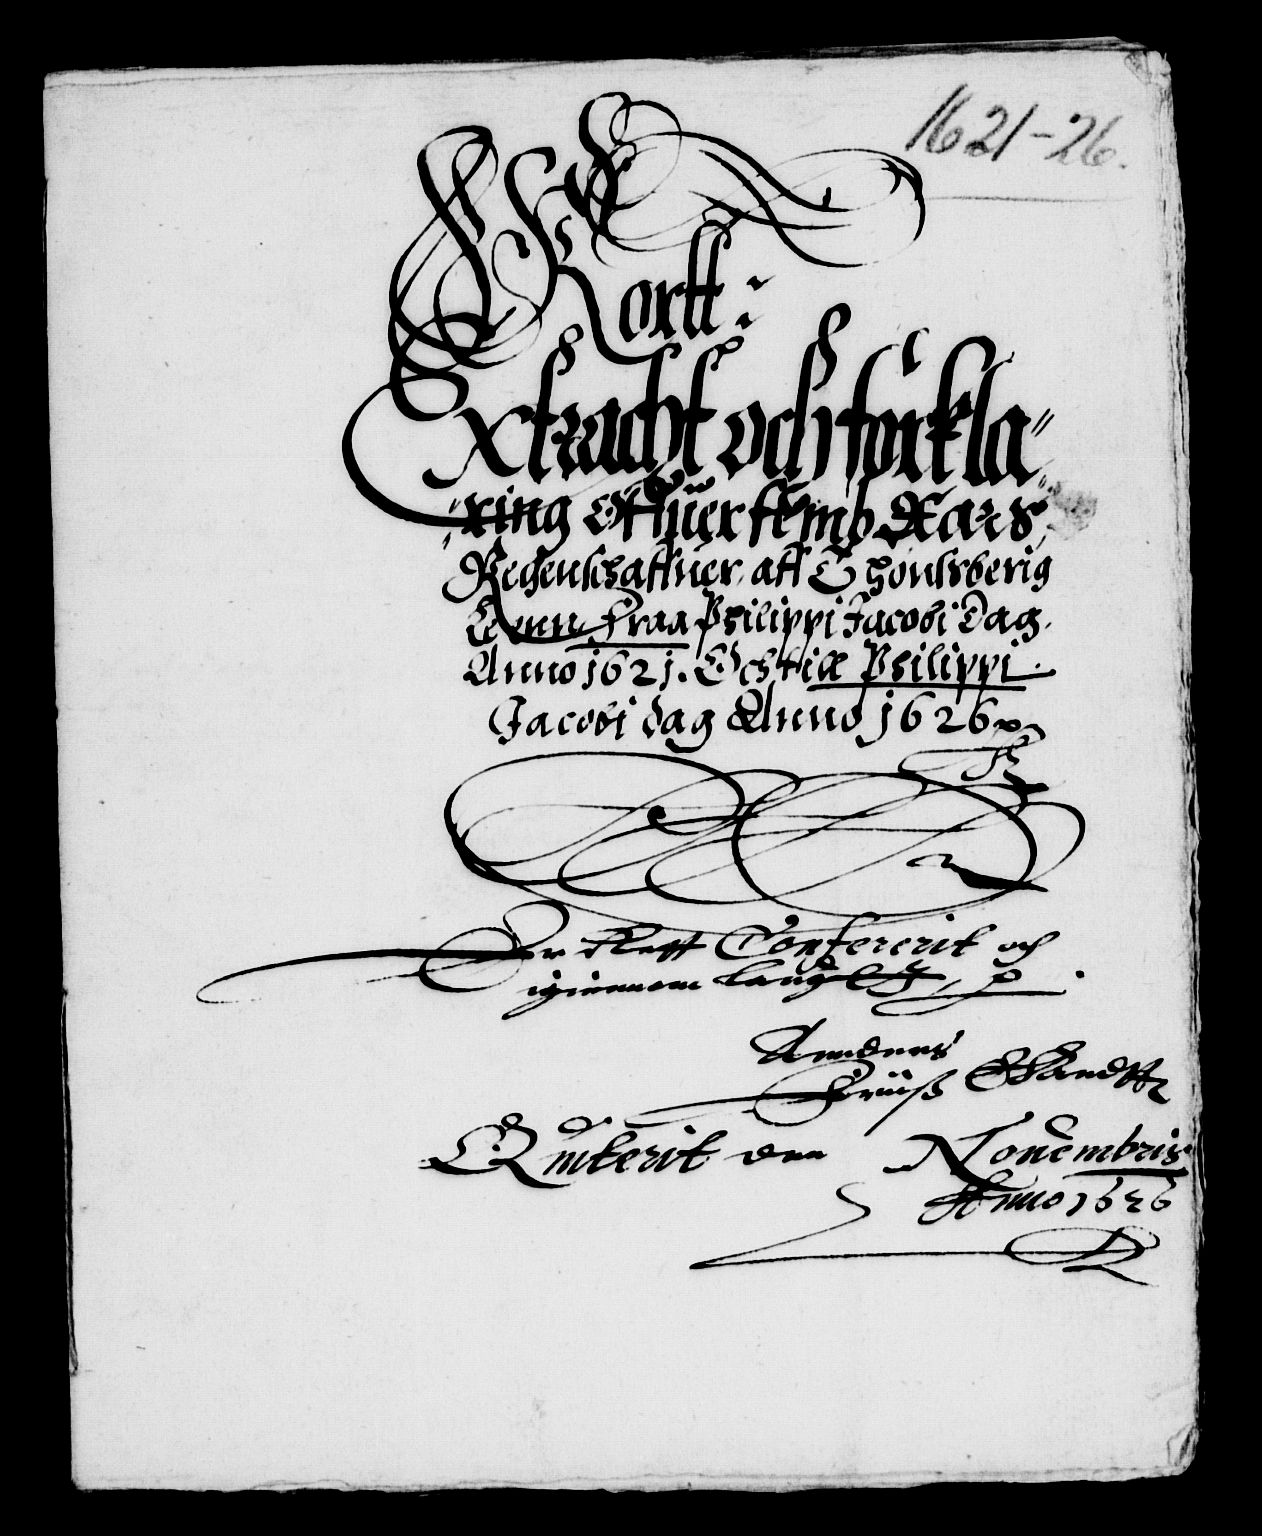 1621-26.
Kortt:
Extracht och forkla=
=ring Offuer femb Aars
Regenschaffuer, aff Thonsberig
Lehnn fraa Philippi Jacobi Dag.
Anno 1621. Och till Philippi
Jacobi dag Anno 1626
Er Confererit och
igiennem
Anders
Quiterit den Nouembris
Anno 1626